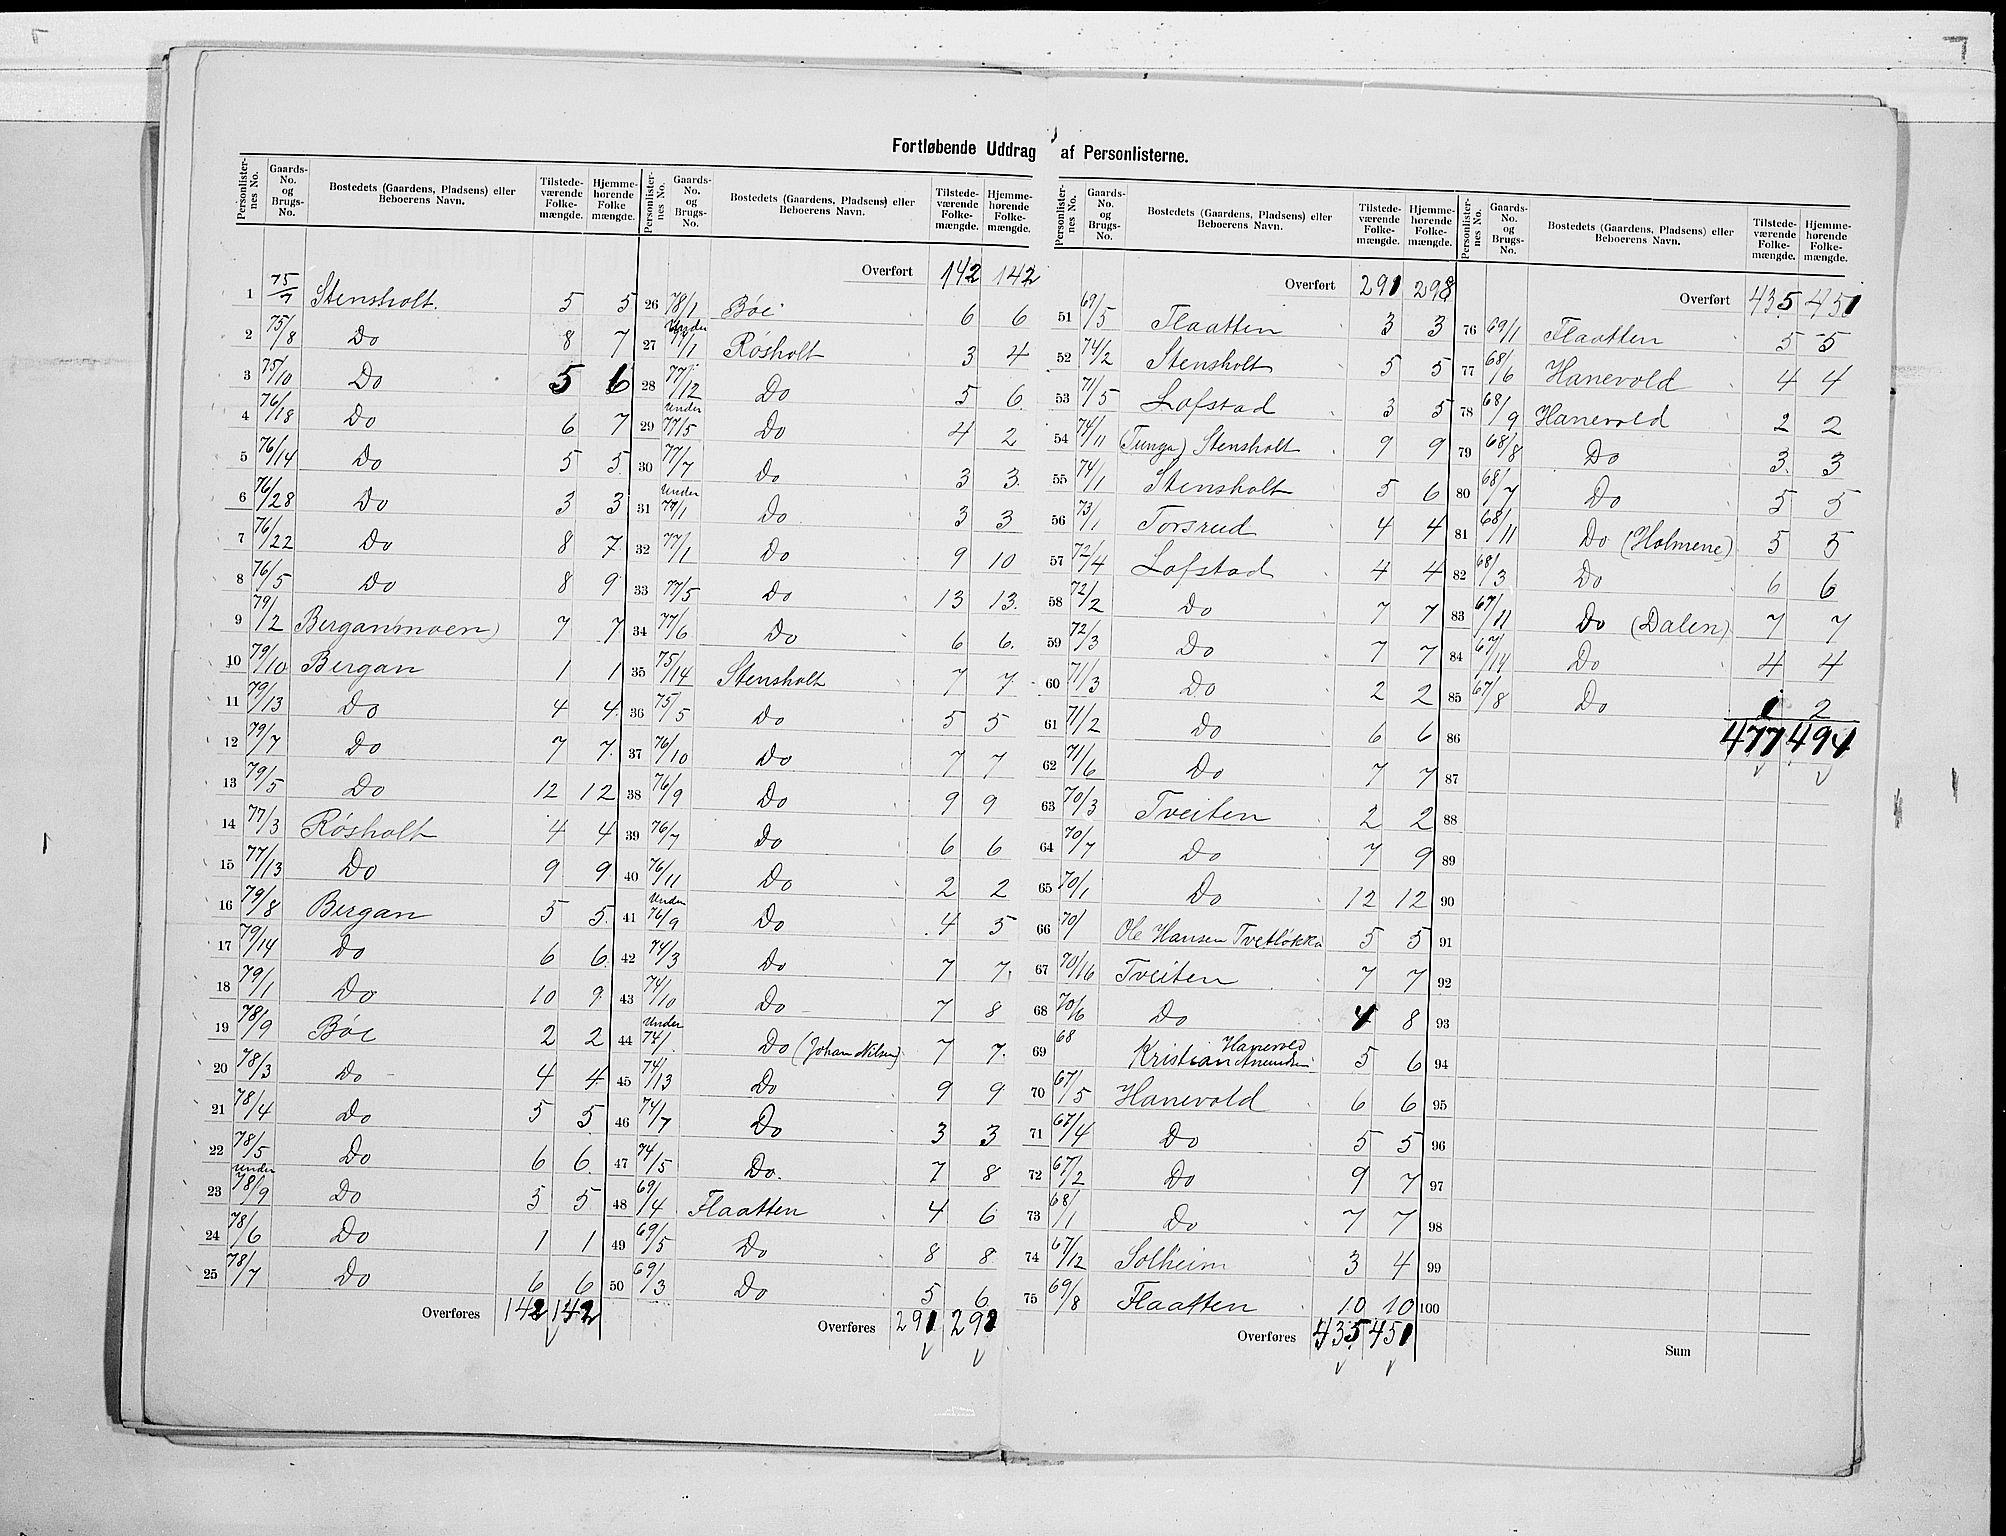 Fortløbende Uddrag af Personlisterne.
Personlister- nes No. Gaards- No. og Brugs- No. Bostedets (Gaardens, Pladsens) eller Beboerens Navn. Tilstede- værende Folke- mængde. Hjemme- hørende Folke mængde.
1 75/7 Stensholt. 5 5
2 75/8 Do 8 7
3 75/10 Do 5 6
4 76/18 Do 6 7
5 76/14 Do 5 5
6 76/28 Do 3 3
7 76/22 Do 8 7
8 76/5 Do 8 9
9 79/2 Berganmoen) 7 7
10 79/10 Bergan 1 1
11 79/13 Do 4 4
12 79/7 Do 7 7
13 79/5 Do 12 12
14 77/3 Røsholt 4 4
15 77/13 Do 9 9
16 79/8 Bergan 5 5
17 79/14 Do 6 6
18 79/1 Do 10 9
19 78/9 Bøe 2 2
20 78/3 Do 4 4
21 78/4 Do 5 5
22 78/5 Do 6 6
23 under 78/9 Do 5 5
24 78/6 Do 1 1
25 78/7 Do 6 6
Overføres 142 142
Personlister- nes No. Gaards- No. og Brugs- No. Bostedets (Gaardens, Pladsens) eller Beboerens Navn. Tilstede- værende Folke- mængde. Hjemme- hørende Folke- mængde.
Overført 142 142
26 78/1 Bøe 6 6
27 Under 77/1 Røsholt 3 4
28 77/12 Do 5 6
29 Under 77/5 Do 4 2
30 77/7 Do 3 3
31 Under 77/1 Do 3 3
32 77/1 Do 9 10
33 77/5 Do 13 13
34 77/6 Do 6 6
35 75/14 Stensholt 7 7
36 75/5 Do 5 5
37 76/10 Do 7 7
38 76/9 Do 9 9
39 76/7 Do 6 6
40 76/11 Do 2 2
41 Under 76/9 Do 4 5
42 74/3 Do 7 7
43 74/10 Do 7 8
44 Under 74/1 Do (Johan Nilsen) 7 7
45 74/13 Do 9 9
46 74/7 Do 3 3
47 74/5 Do. 7 8
48 69/4 Flaatten 4 6
49 69/5 Do 8 8
50 69/3 Do 5 6
Overføres 291 298
Personlister- nes No. Gaards- No. og Brugs- No. Bostedets (Gaardens, Pladsens) eller Beboerens Navn. Tilstede- værende Folke- mængde. Hjemme- hørende Folke- mængde.
Overført 291 298
51 69/5 Flaatten 3 3
52 74/2 Stensholt 5 5
53 71/5 Lofstad 3 5
54 74/11 (Tunga) Stensholt 9 9
55 74/1 Stensholt 5 6
56 73/1 Torsrud 4 4
57 72/4 Lofstad 4 4
58 72/2 Do 7 7
59 72/3 Do 7 7
60 71/3 Do 2 2
61 71/2 Do 6 6
62 71/6 Do 7 7
63 70/3 Tveiten 2 2
64 70/7 Do 7 9
65 70/1 Do 12 12
66 70/ Ole Hansen Tvetløkka 5 5
67 70/16 Tveiten 7 7
68 70/6 Do 4 8
69 68 Hanevold Kristian Anundsen 5 6
70 67/5 Hanevold 6 6
71 67/4 Do 5 5
72 67/2 Do 9 7
73 68/1 Do 7 7
74 67/12 Solheim 3 4
75 69/8 Flaatten 10 10
Overføres 435 451
Personlister- nes No. Gaards- No. og Brugs- No. Bostedets (Gaardens, Pladsens) eller Beboerens Navn. Tilstede- værende Folke- mængde. Hjemme- hørende Folke- mængde.
Overført 435 451
76 69/1 Flaatten 5 5
77 68/6 Hanevold 4 4
78 68/9 Hanevold 2 2
79 68/8 Do 3 3
80 68/7 Do 5 5
81 68/11 Do (Holmene) 5 5
82 68/3 Do 6 6
83 67/11 Do (Dalen) 7 7
84 67/14 Do 4 4
85 67/8 Do 1 2
86 477 494
87
88
89
90
91
92
93
94
95
96
97
98
99
100
Sum